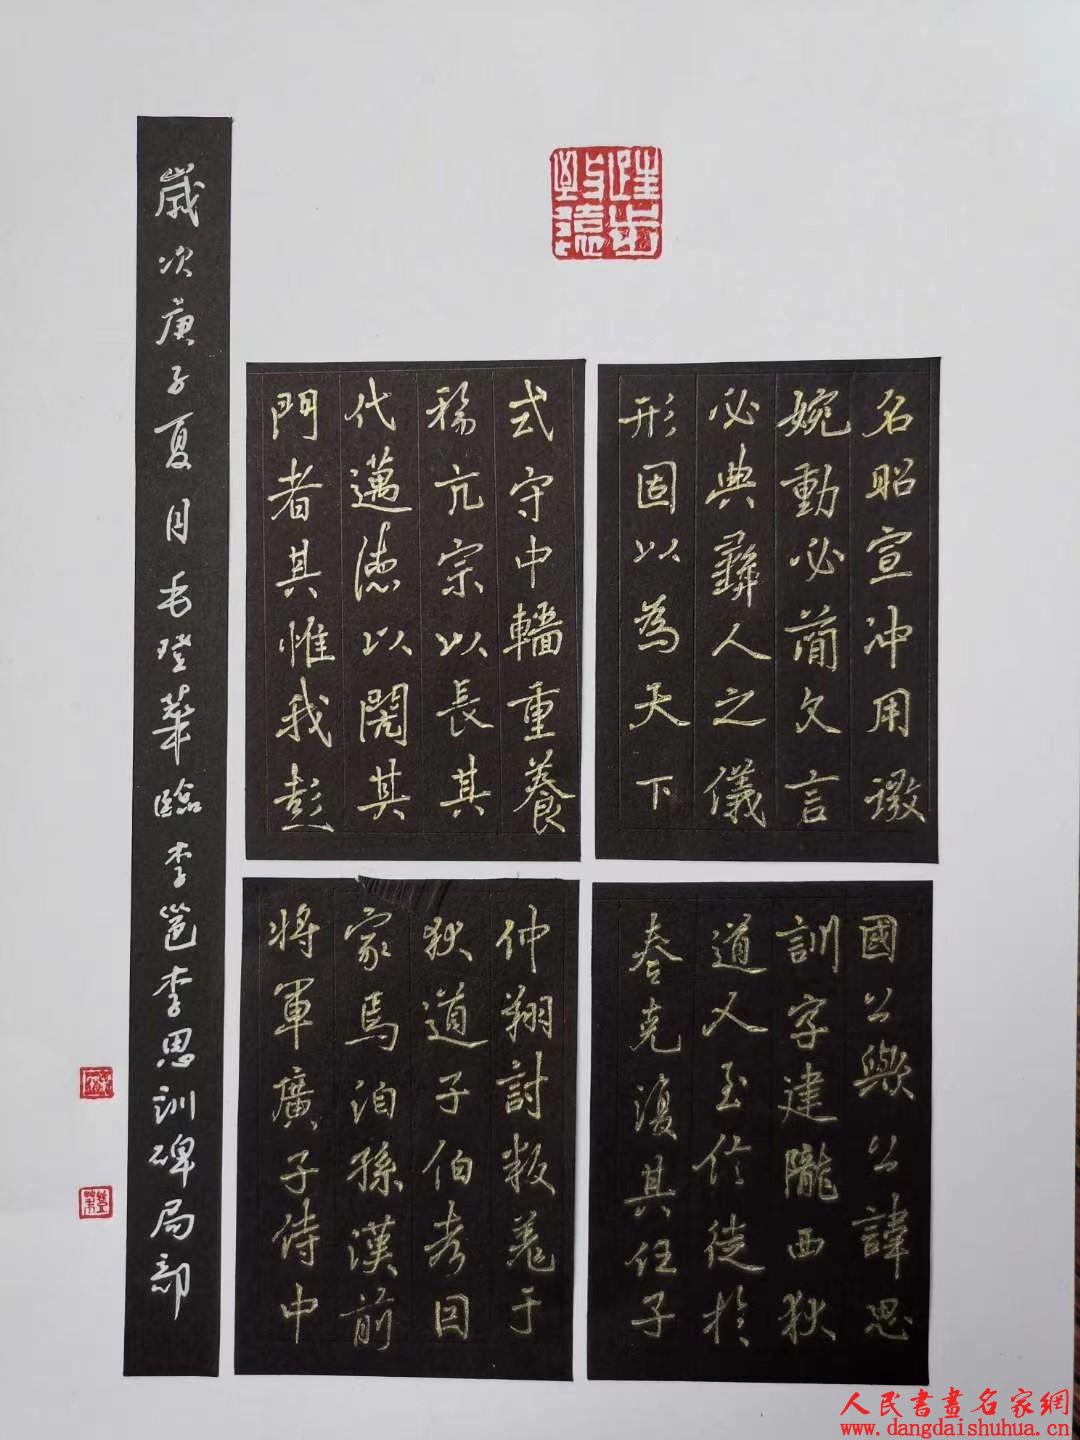 名昭宣沖用
婉動必簡文言
必典彝人之儀
形固以為天下
式守中轖重養
福亢宗以長其
代邁德以其
門者其惟我彭
國公歟公諱思
訓字建隴西狄
道人至信徒於
秦克復其任子
仲翔討叛羌于
狄道子伯考因
家焉洎孫漢前
將軍廣子侍中
歲次庚子夏月毛登華臨李邕李思訓碑局部
人民書畫名家網
www.dangdaishuhua.cn